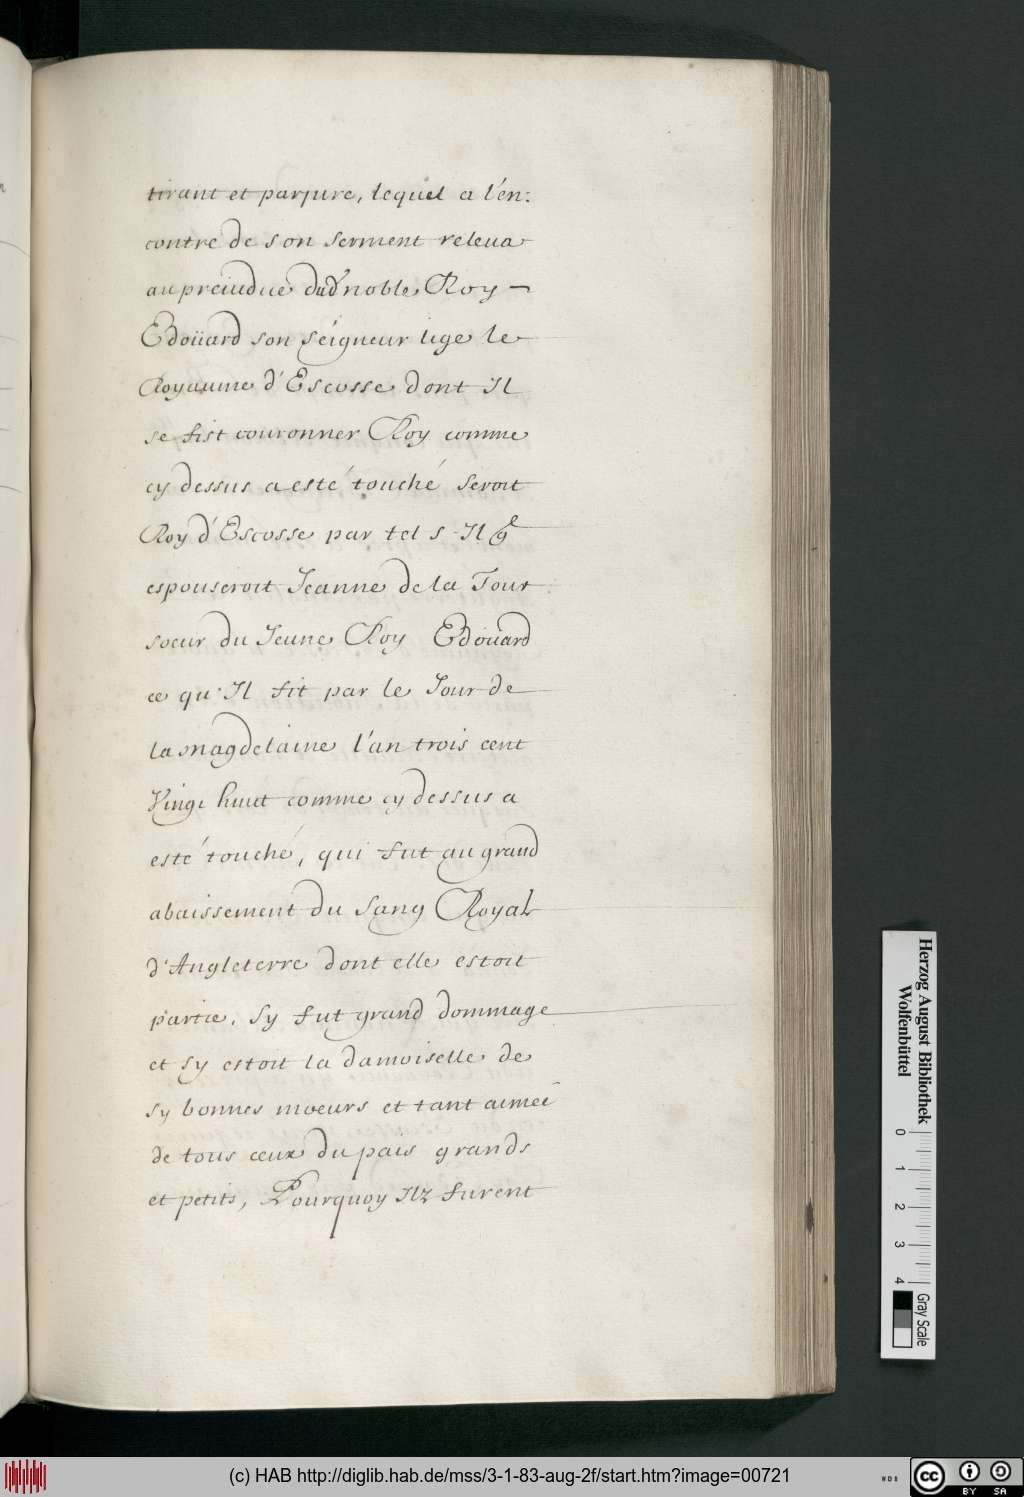 tirant et parjure, lequel a l'en:
contre de son serment releua
au preiudice dud noble Roy
Edoüard son seigneur lige le
Royaume d'Escosse dont Il
se fist couronner Roy comme
cy dessus a esté touché seroit
Roy d'Escosse par tel s Il
espouseroit Jeanne de la Tour
soeur du Jeune Roy Edoüard
ce qu'Il fit par le Jour de
la magdelaine l'an trois cent
Vingt huict comme cy dessus a
esté touché, qui fut au grand
abaissement du Sang Royal
d'Angleterre dont elle estoit
partie. Sy fut grand dommage
et sy estoit la damoiselle de
sy bonnes moeurs et tant aimeé
de tous ceux du pais grands
et petits, Pourquoy Ilz furent
Herzog August Bibliothek
Wolfenbüttel
0 1 2 3 4
Gray Scale
(c) HAB http://diglib.hab.de/mss/3-1-83-aug-2f/start.htm?image=00721
cc BY SA